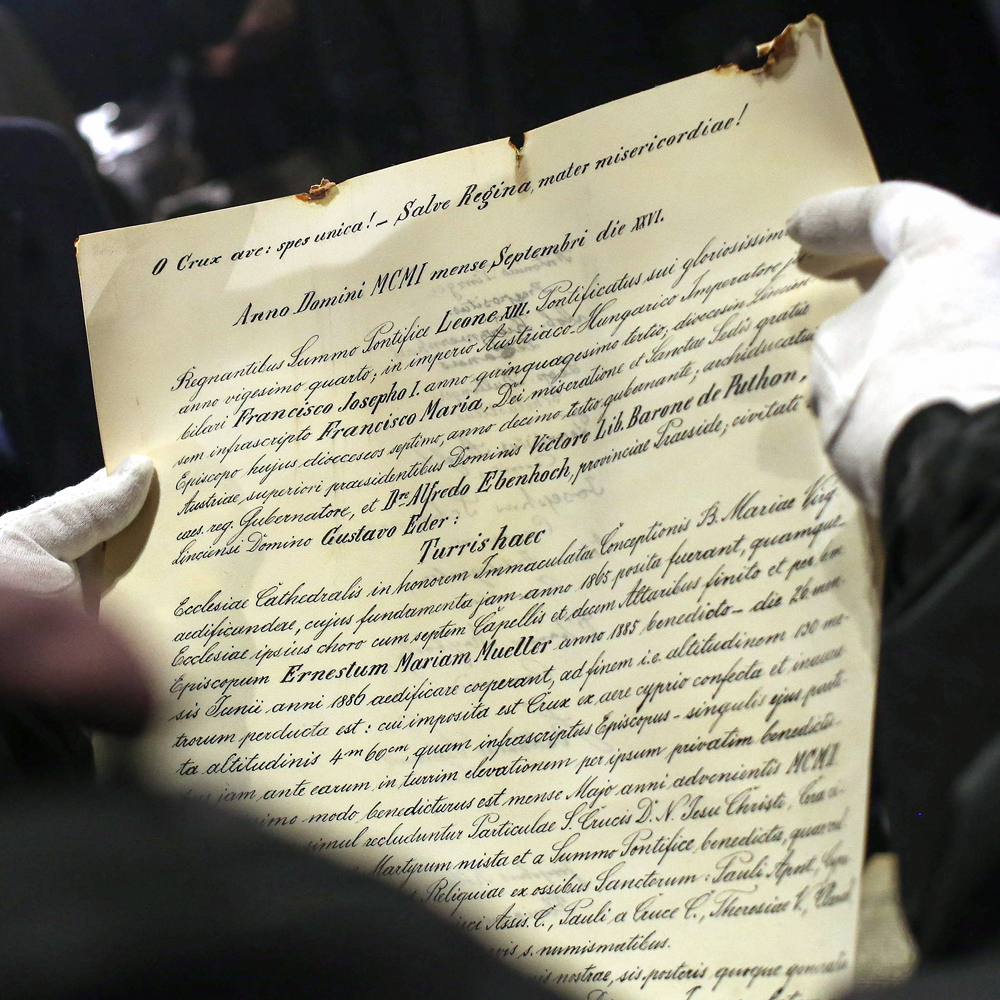 O Crux ave: spes unica! – Salve Regina, mater misericordiae!
Anno Domini MCMI mense Septembri die XXVI.
Regnantibus Summo Pontifice Leone XIII. Pontificatus sui gloriosissimi
anno vigesimo quarto; in imperio Austriaco-Hungarico Imperatore ju-
bilari Francisco Josepho I. anno quinquagesimo tertio; diocesin Lincien-
sem infrascripto Francisco Maria, Dei miseratione et Sanctae Sedis gratia
Episcopo hujus dioeceseos septimo, anno decimo tertio gubernante; archiducatui
Austriae superiori praesidentibus Dominis Victore Lib. Barone de Puthon,
caes. reg. Gubernatore, et Dre Alfredo Ebenhoch, provinciae Praeside; civitati
Linciensi Domino Gustavo Eder:
Turris haec
Ecclesiae Cathedralis in honorem Immaculatae Conceptionis B. Mariae Virg.
aedificandae, cujus fundamenta jam anno 1865 posita fuerant, quamque
Ecclesiae ipsius choro cum septem Capellis et decem Altaribus finito et per
Episcopum Ernestum Mariam Mueller anno 1885 benedicto – die 26 men-
sis Junii anni 1886 aedificare coeperant, ad finem i. e. altitudinem 130 me-
trorum perducta est: cui imposita est Crux ex aere cyprio confecta et
ta altitudinis 4m 60cm, quam infrascriptus Episcopus – singulis ejus parti-
jam ante earum in turrim elevationem per ipsum privatim benedictis
modo, benedicturus est mense Majo anni advenientis MCMII.
simul recluduntur Particulae S. Crucis D. N. Jesu Christi,
Martyrum mista et a Summo Pontifice benedicta,
Reliquiae ex ossibus Sanctorum: Pauli Apost.,
Assis. C., Pauli a Cruce C., Theresiae V.,
s. numismatibus.
nostrae, sis posteris quoque